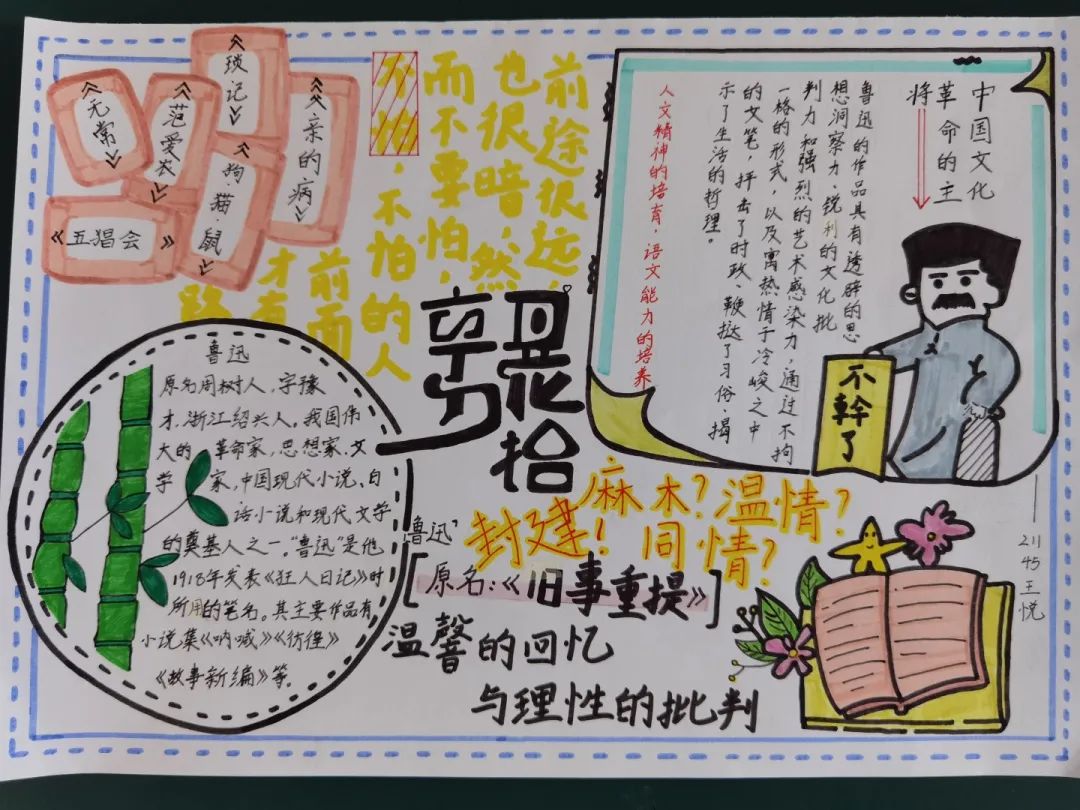 《琐记》
《无常》
《范爱农》
《父亲的病》
《狗·猫·鼠》
《五猖会》
前途很远,
也很暗,然
而不要怕,
不怕,不怕
的人
前面
才有
路
中国文化
革命的主
将
鲁迅的作品具有透辟的思
想洞察力、锐利的文化批
判力和强烈的艺术感染力,通过不拘
一格的形式,以及寓热情于冷峻之中
的文笔,抨击了时政、鞭挞了习俗、揭
示了生活的哲理。
人文精神的培育·语文能力的培养
不幹了
朝花夕拾
鲁迅
原名周树人,字豫
才,浙江绍兴人。我国伟
大的革命家,思想家、文
学家,中国现代小说、白
话小说和现代文学
的奠基人之一。“鲁迅”是他
1918年发表《狂人日记》时
所用的笔名。其主要作品有
小说集《呐喊》《彷徨》
《故事新编》等。
麻木?温情?
封建!同情?
“鲁迅”
[原名:《旧事重提》]
温馨的回忆
与理性的批判
211
45
王悦